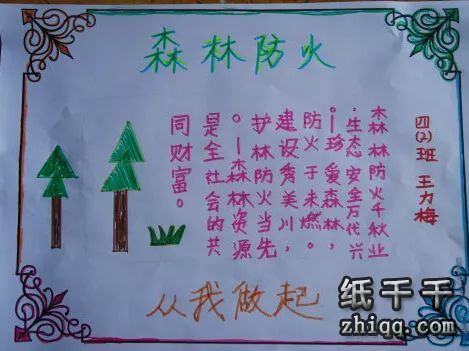 森林防火
四(2)班 王力梅
森林防火千秋业
,生态安全万代兴
!珍爱森林,
防火于未燃。
建设秀美川,
护林防火当先
。一森林资源
是全社会的共
同财富。
从我做起
纸千千
zhiqq.com